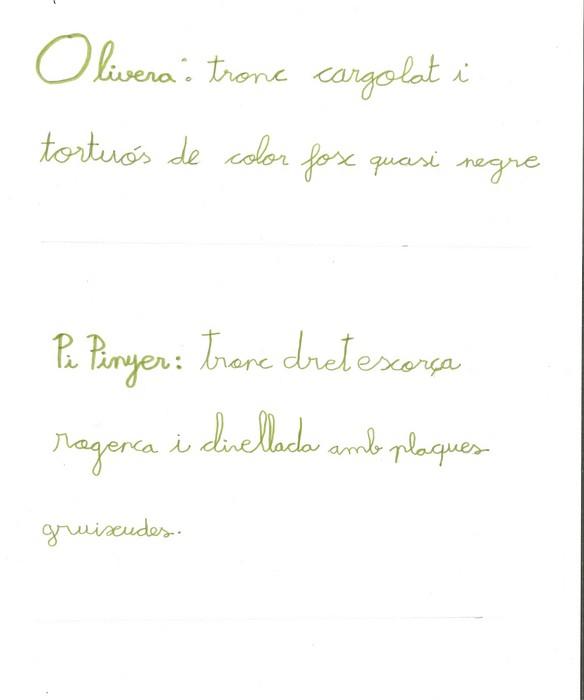 Olivera: tronc cargolat i
tortuós de color fox quasi negre
Pi Pinyer: tronc dret escorça
rogenca i divellada amb plaques
gruixudes.